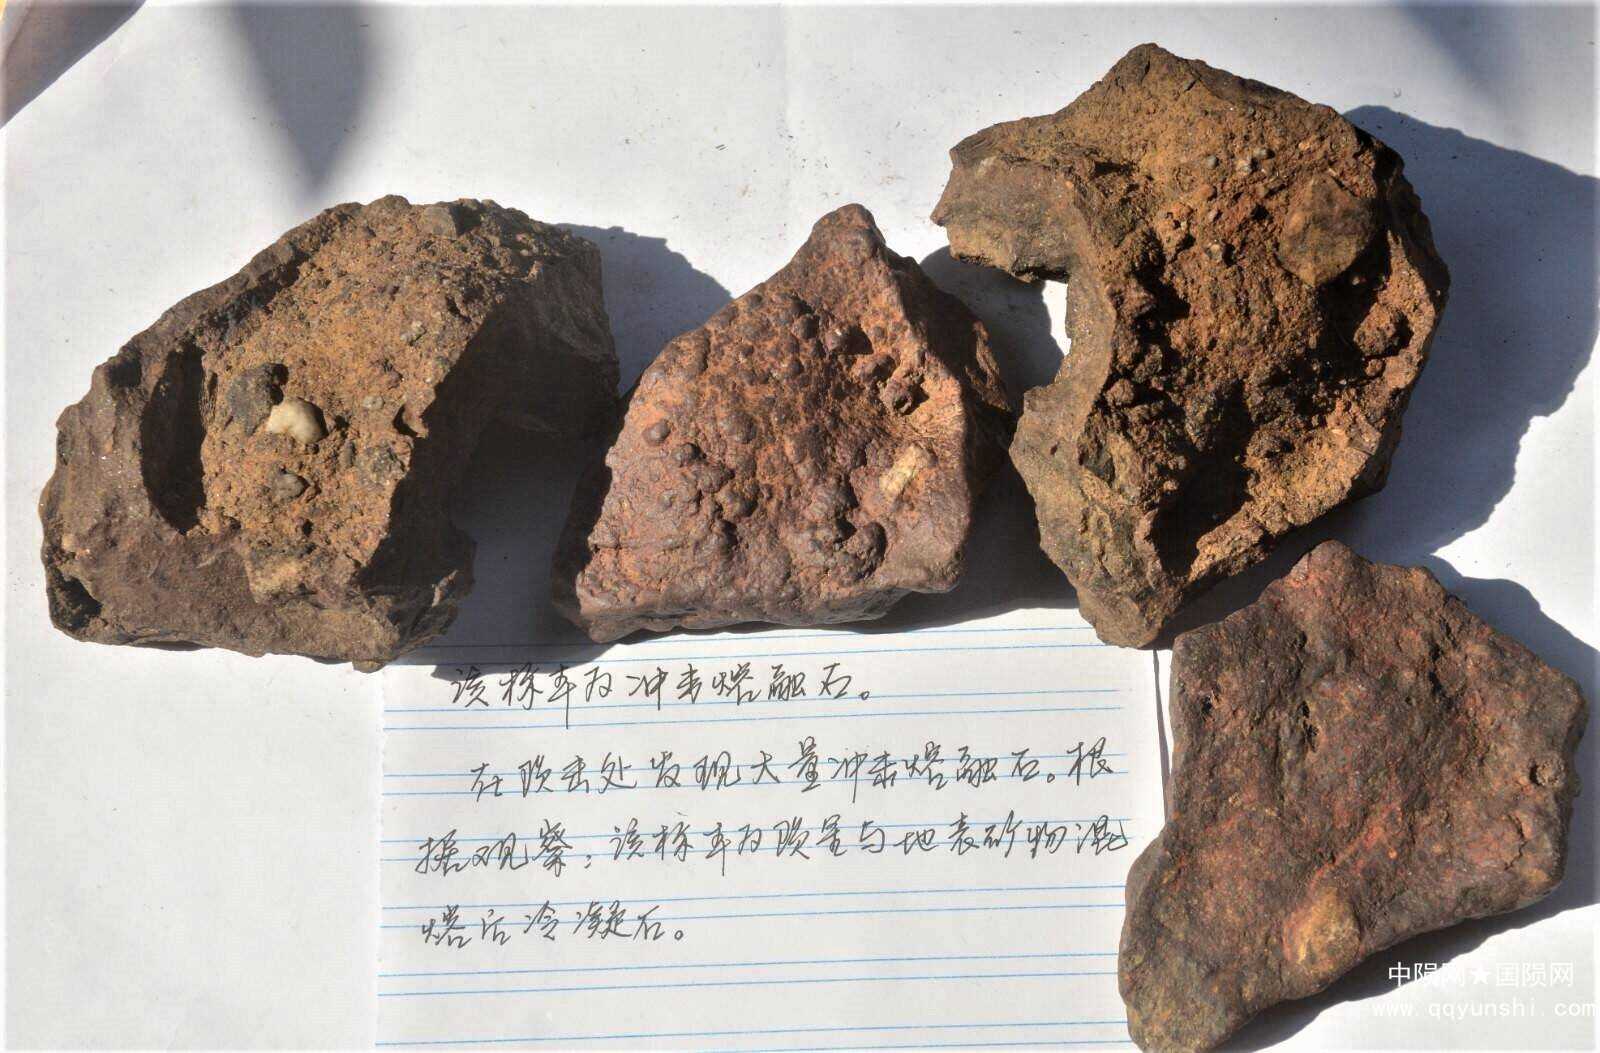 该标本为冲击熔融石。
在陨击处发现大量冲击熔融石。根
据观察：该标本为陨星与地表矿物混
熔后冷凝石。
中陨网★国陨网
www.qqyunshi.com